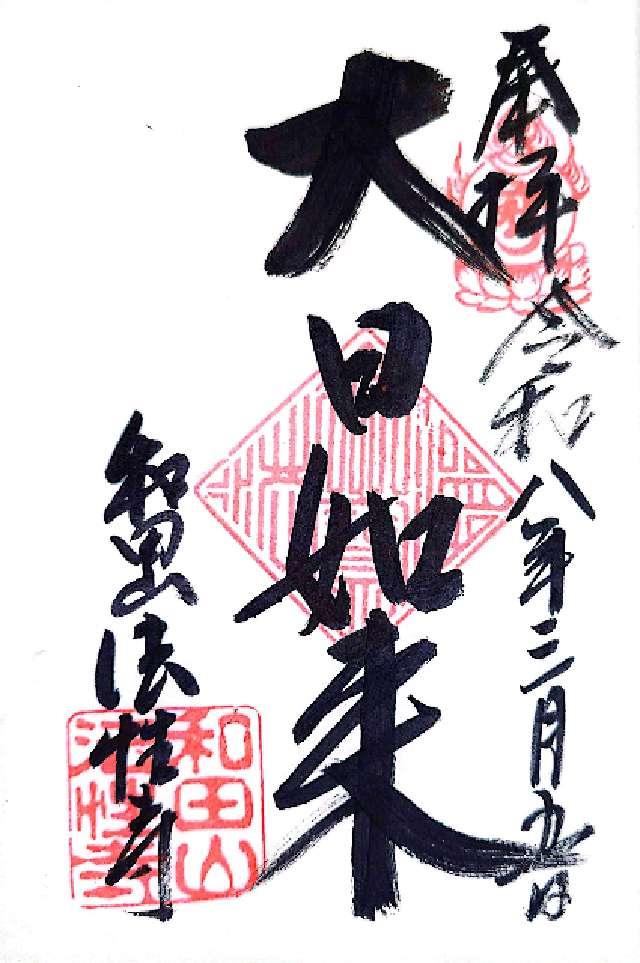 奉拝 令和八年三月九日
大日如来
和田山法性寺
和田山
法性寺